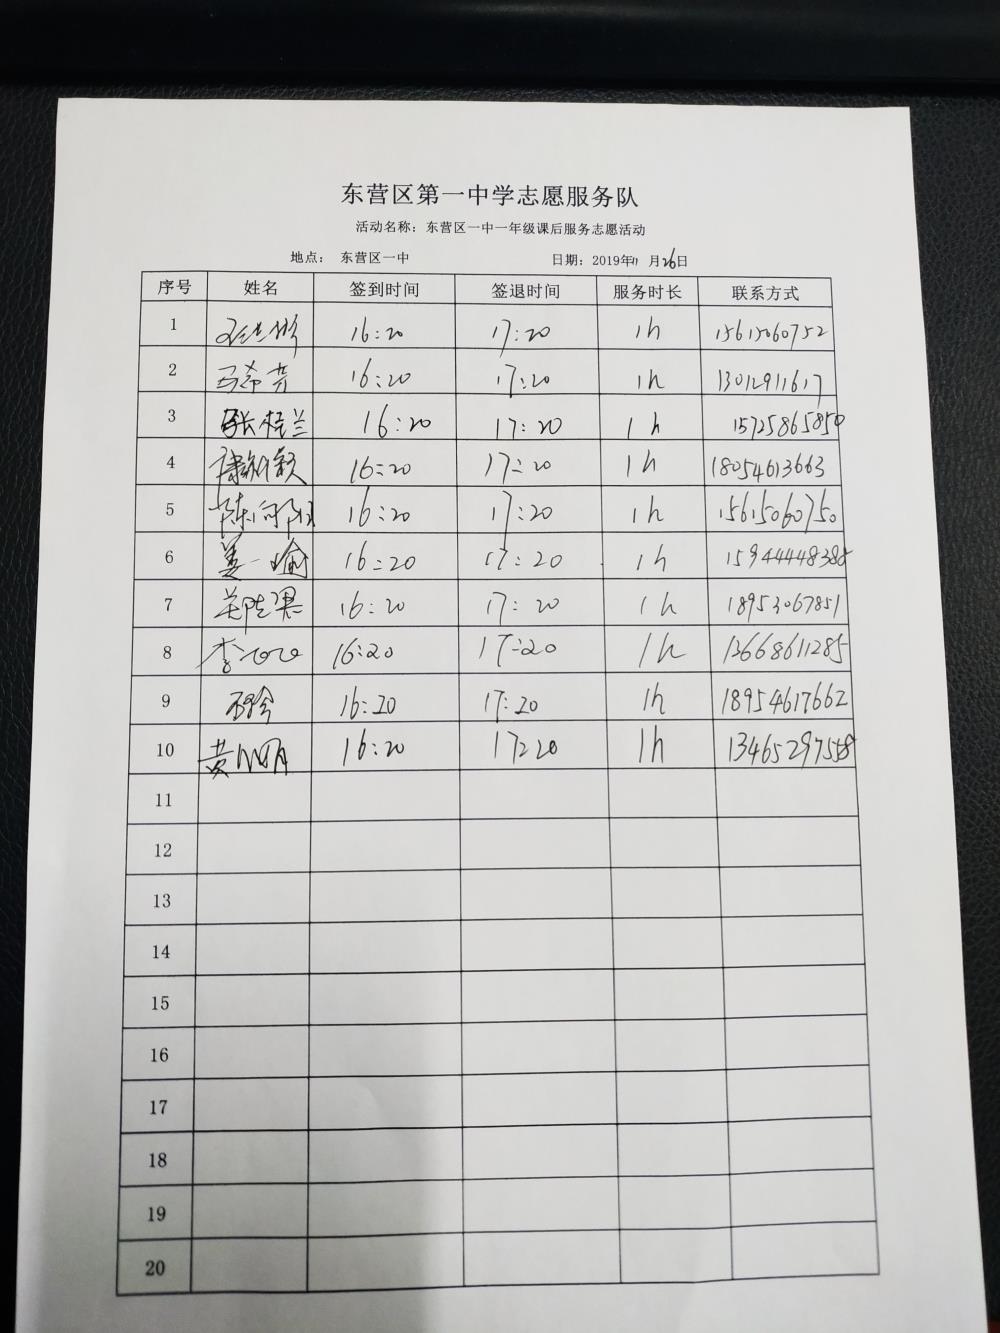 东营区第一中学志愿服务队
活动名称：东营区一中一年级课后服务志愿活动
地点： 东营区一中 日期：2019年11月26日
序号 姓名 签到时间 签退时间 服务时长 联系方式
1 16:20 17:20 1h 15615060752
2 马希芳 16:20 17:20 1h 13012911617
3 张桂兰 16:20 17:20 1h 15725865850
4 16:20 17:20 1h 18054613663
5 陈向阳 16:20 17:20 1h 15615060750
6 姜一喻 16:20 17:20 1h
7 16:20 17:20 1h 18953067851
8 16:20 17:20 1h 13668611285
9 16:20 17:20 1h 18954617662
10 16:20 17:20 1h 13465297558
11
12
13
14
15
16
17
18
19
20